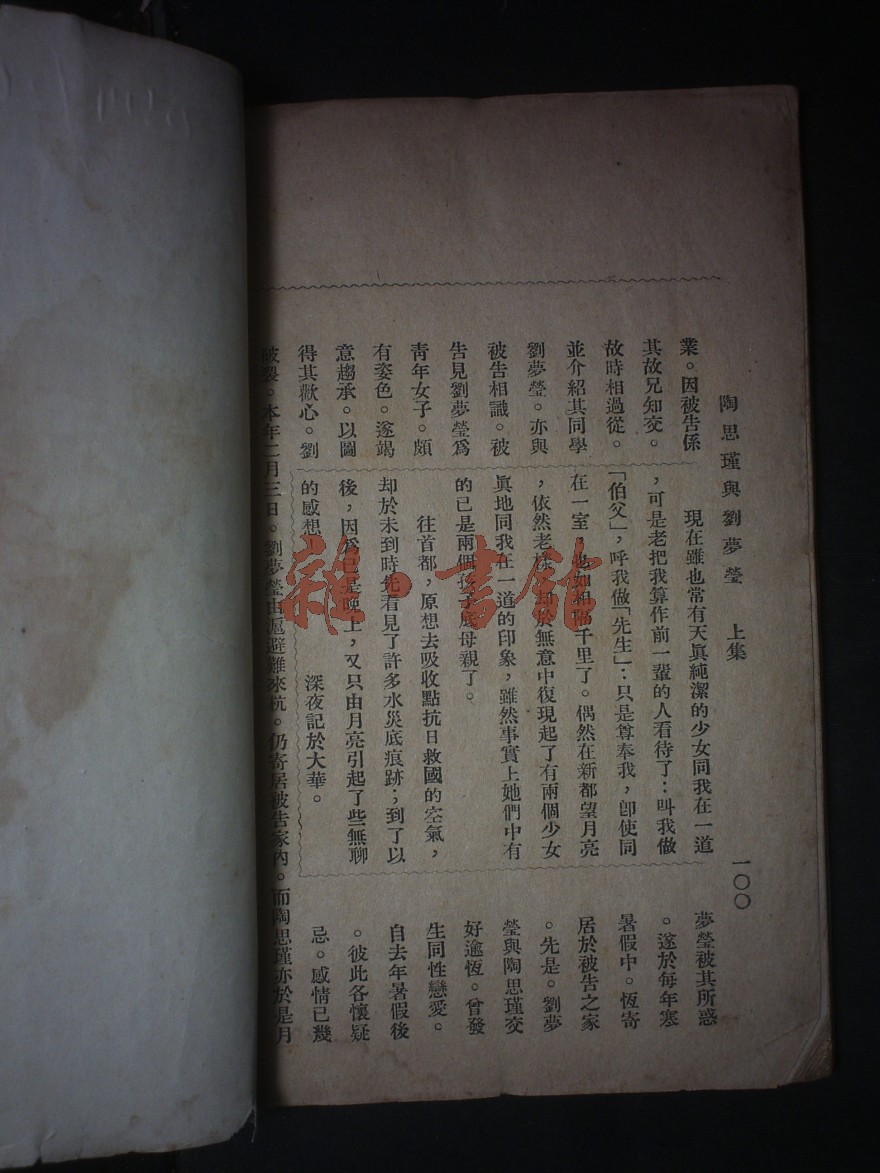 陶思瑾與劉夢瑩　上集
一〇〇
業。因被告係
其故兄知交。
故時相過從。
並介紹其同學
劉夢瑩。亦與
被告相識。被
告見劉夢瑩爲
青年女子。頗
有姿色。遂竭
意趨承。以圖
得其歡心。劉
夢瑩被其所惑
。遂於每年寒
暑假中。恆寄
居於被告之家
。先是。劉夢
瑩與陶思瑾交
好逾恆。曾發
生同性戀愛。
自去年暑假後
。彼此各懷疑
忌。感情已幾
破裂。本年二月三日。劉夢瑩由滬避難來杭。仍寄居被告家內。而陶思瑾亦於是月
現在雖也常有天眞純潔的少女同我在一道
，可是老把我算作前一輩的人看待了：叫我做
「伯父」，呼我做「先生」：只是尊奉我，卽使同
在一室，也如相隔千里了。偶然在新都望月亮
，依然老樣，却於無意中復現起了有兩個少女
眞地同我在一道的印象，雖然事實上她們中有
的已是兩個孩子底母親了。
往首都，原想去吸收點抗日救國的空氣，
却於未到時先看見了許多水災底痕跡；到了以
後，因爲已是晚上，又只由月亮引起了些無聊
的感想！
深夜記於大華。
雜·書館